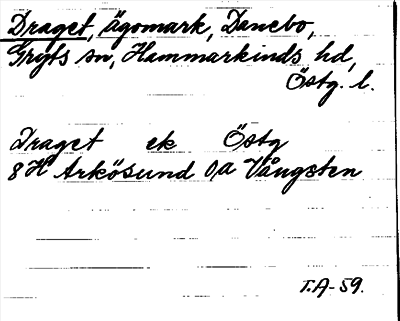 Draget, ägomark, Danebo,
Gryts sn, Hammarkinds hd,
Östg. l.
Draget ek Östg
8H Arkösund o,a Vångsten
T.A-59.